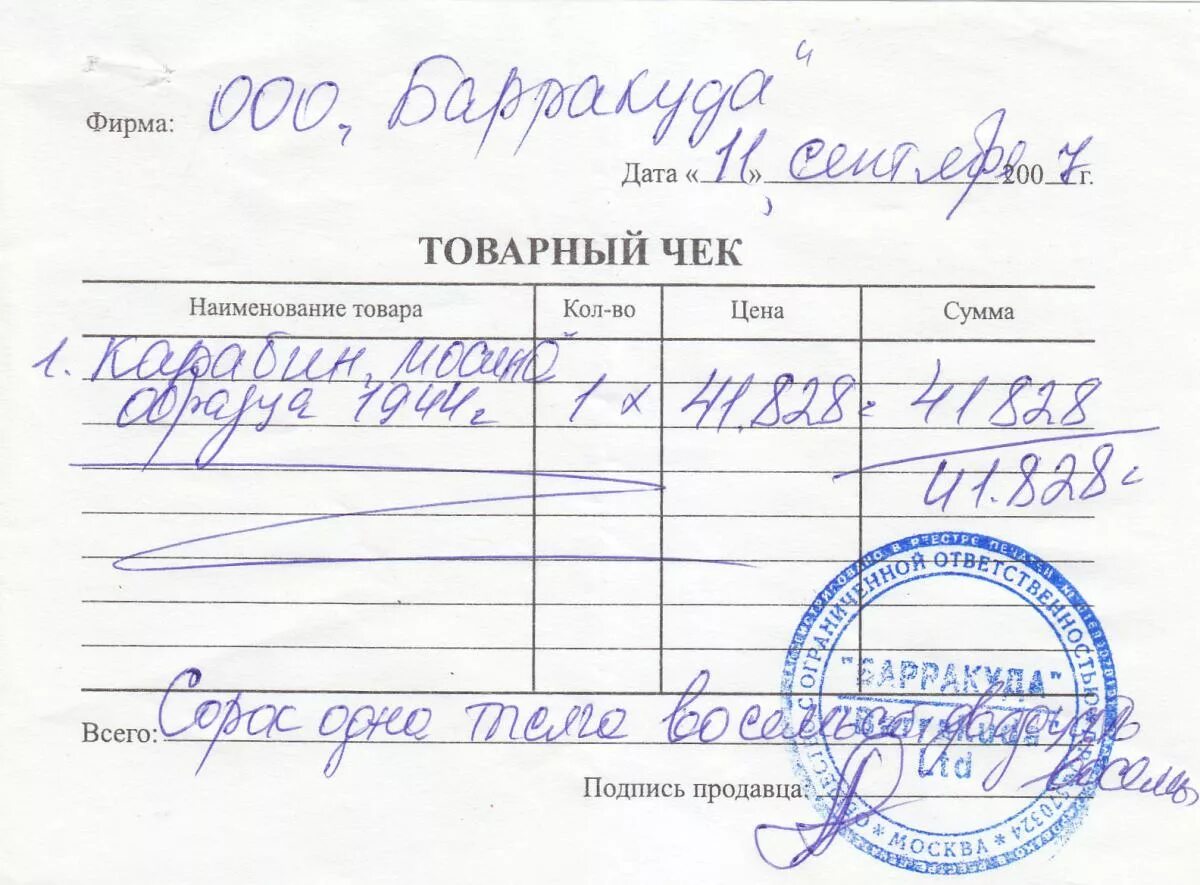 Фирма: ООО „Барракуда"
Дата «11» сентября 2007 г.
ТОВАРНЫЙ ЧЕК
Наименование товара Кол-во Цена Сумма
1. Карабин „Мосина"
образца 1944 г 1 x 41.828 = 41828
41.828=
Всего: Сорок одна тысяча восемьсот двадцать
восемь
Подпись продавца:
С ОГРАНИЧЕННОЙ ОТВЕТСТВЕННОСТЬЮ
"БАРРАКУДА"
"Barrakuda"
Ltd
* МОСКВА *